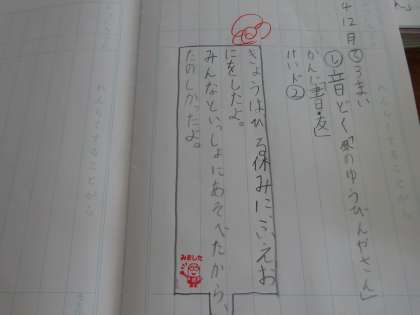 て 3まい
音どく「風のゆうびんやさん」
かんじ「書・友」
けいド②
きょうはひる休みにふえお
にをしたよ。
みんなといっしょにあそべたから、
たのしかったよ。
みました